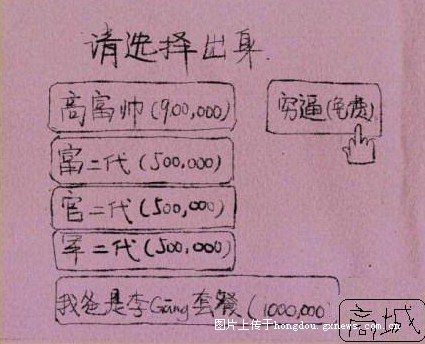 请选择出身
高富帅(900,000)
穷逼(免费)
富二代(500,000)
官二代(500,000)
军二代(500,000)
我爸是李Gāng套餐(1000,000
商城
图片上传于hongdou.gxnews.com.cn